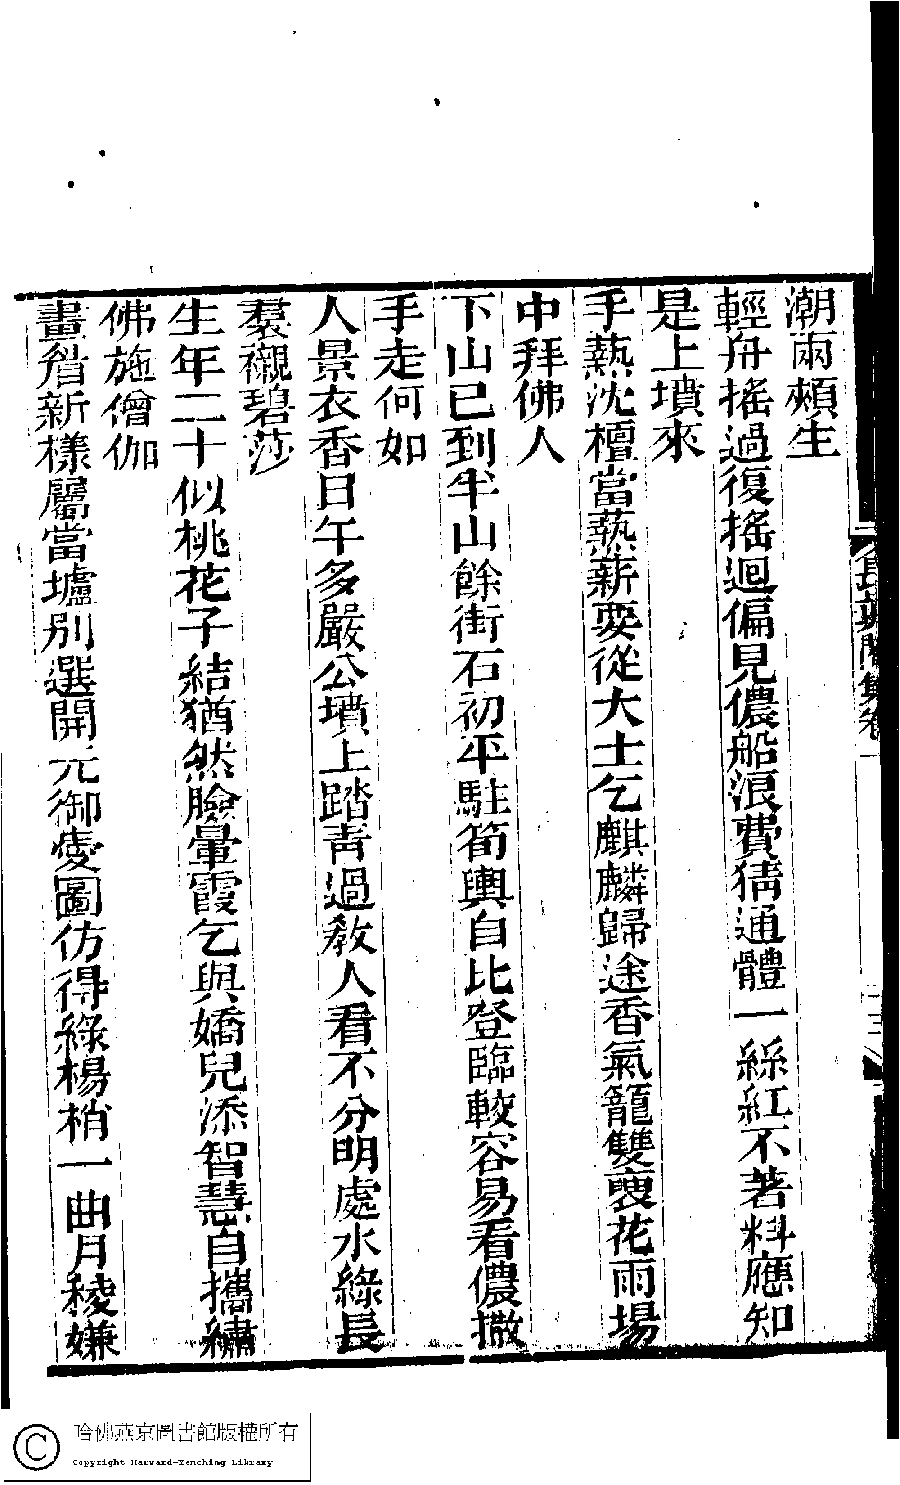 潮雨頰生
輕舟搖過復搖迴偏見儂船浪費猜通體一絲紅不著料應知
是上墳來
手熱沈檀當熱薪要從大士乞麒麟歸途香氣籠雙袖花雨場
中拜佛人
下山已到半山餘街石初平駐筍輿自比登臨較容易看儂撒
手走何如
人景衣香日午多嚴公墳上踏青過教人看不分明處水綠長
裙襯碧莎
生年二十似桃花子結猶然臉暈霞乞與嬌兒添智慧自攜繡
佛施僧伽
畫眉新樣屬當壚別選開元御愛圖仿得綠楊梢一曲月稜嫌
集卷一
哈佛燕京圖書館版權所有
Copyright Harvard-Yenching Library